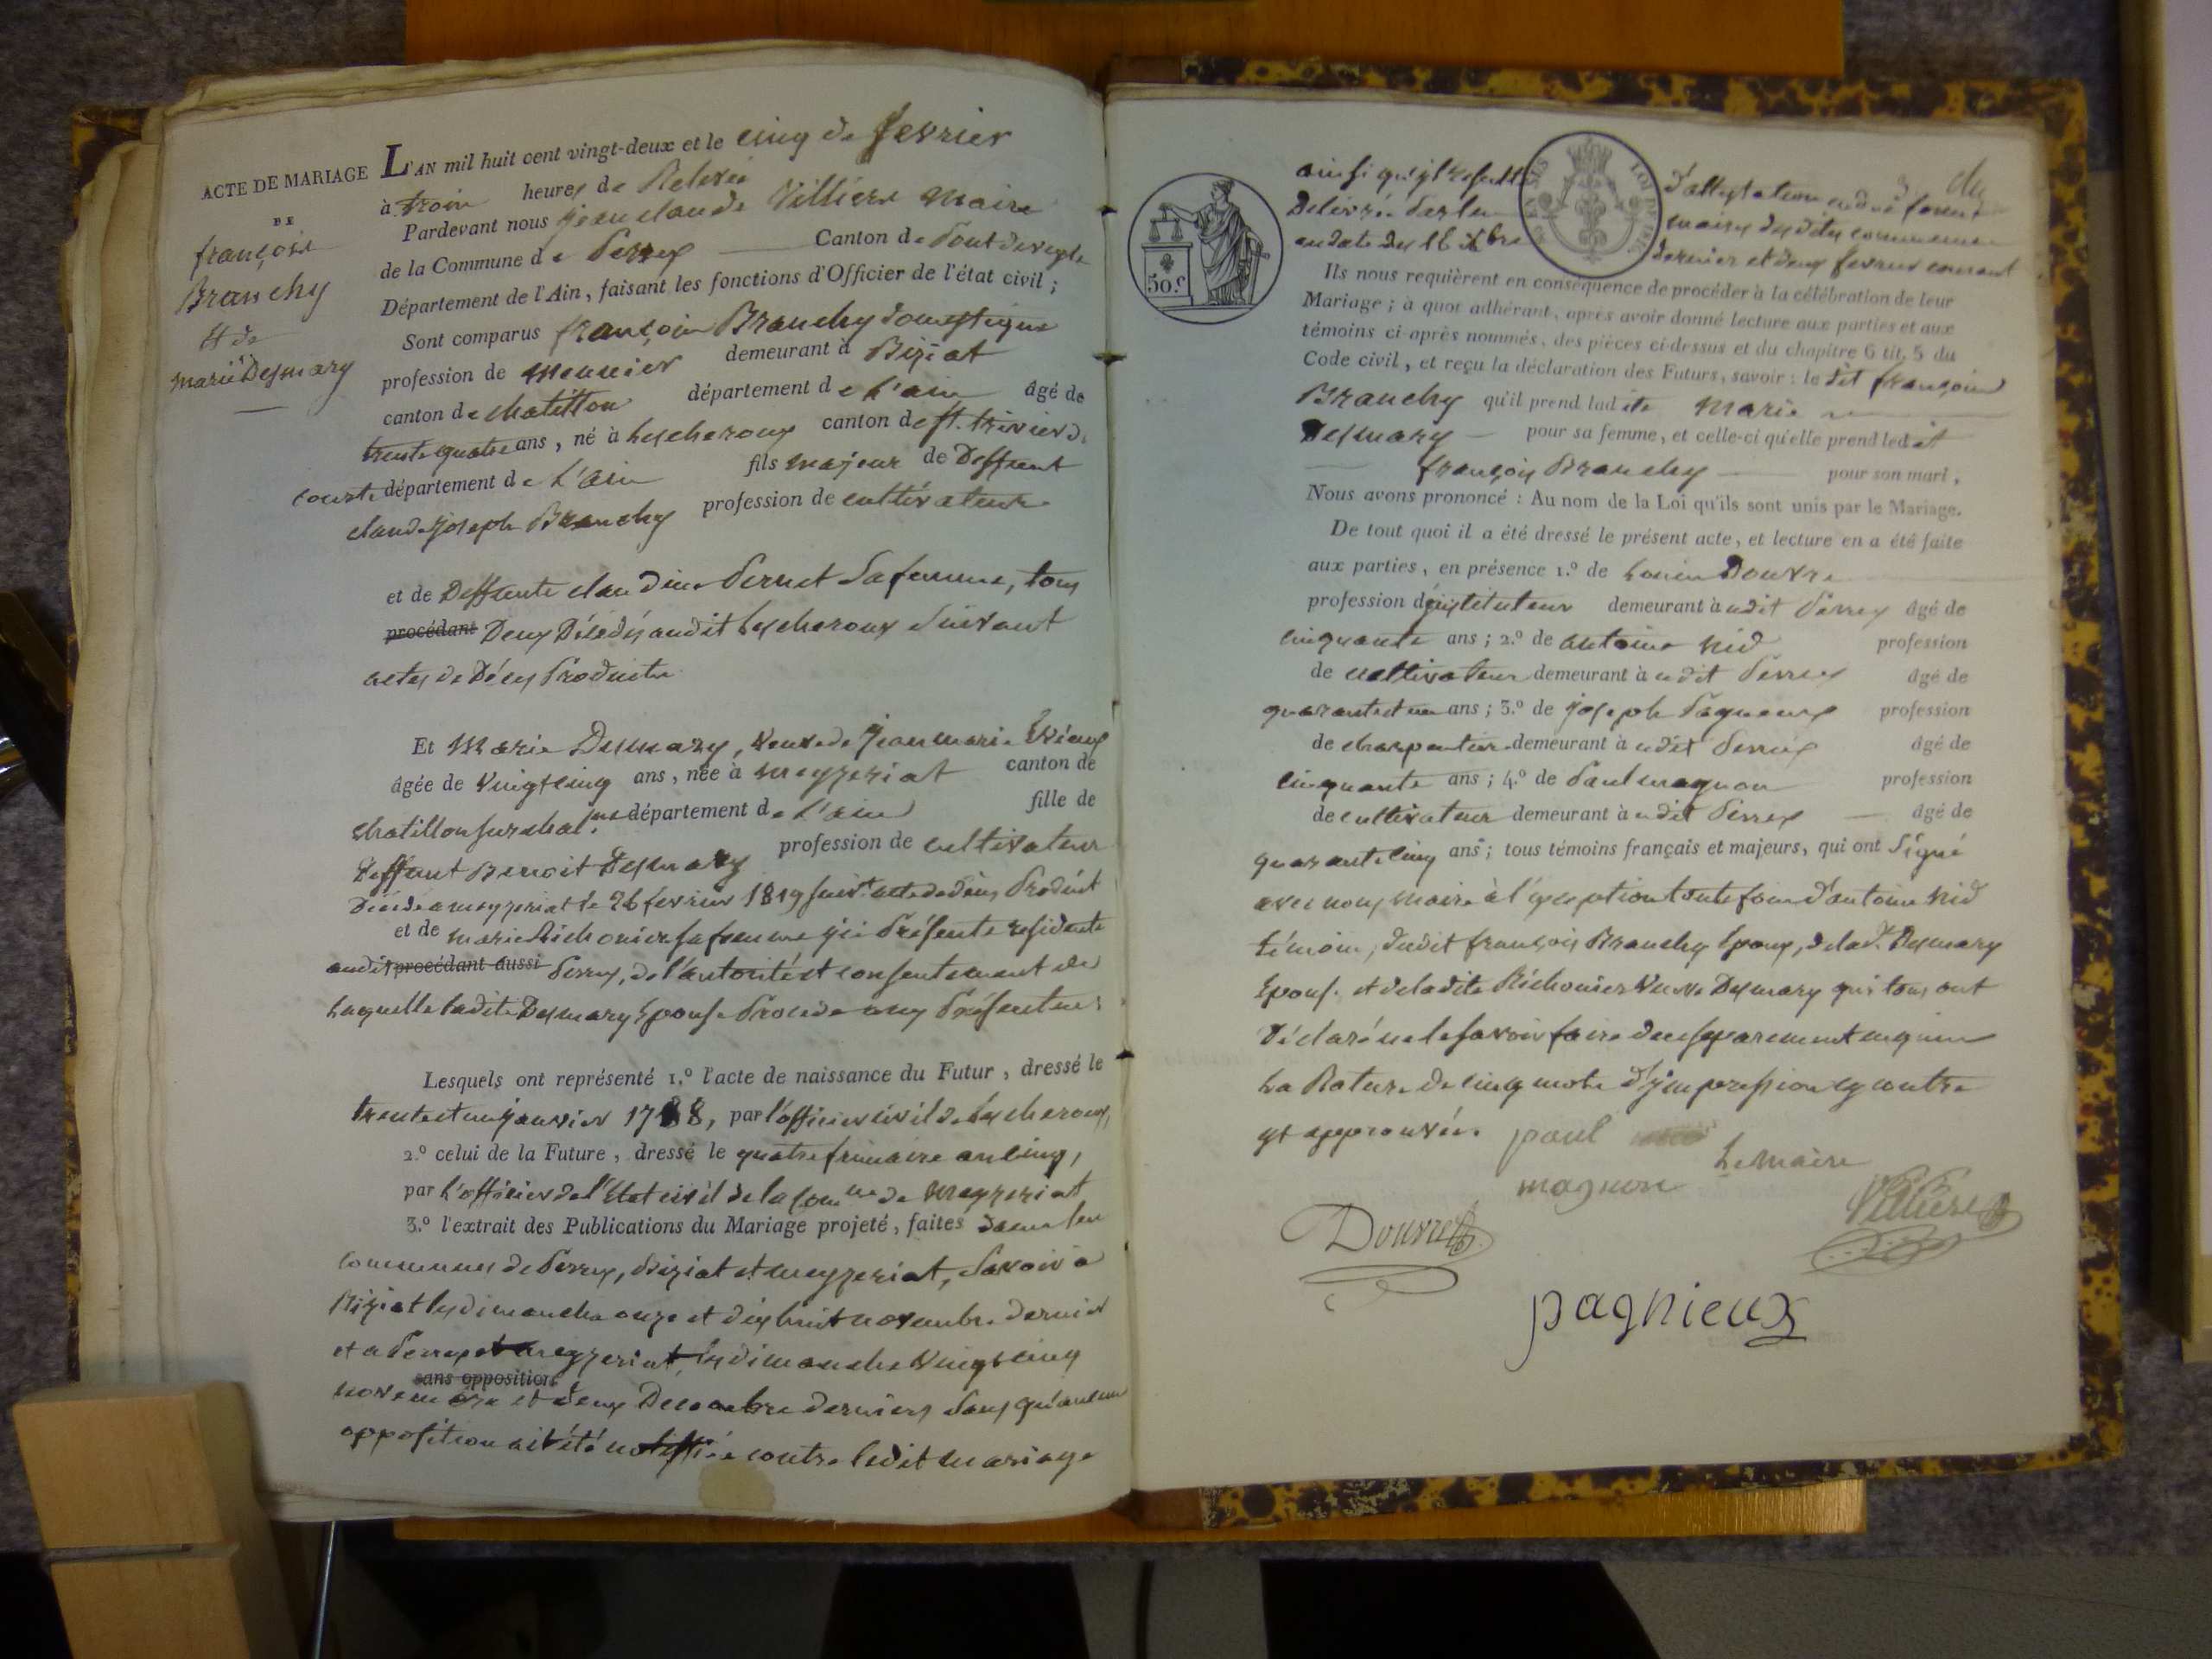 ACTE DE MARIAGE
DE
françois
Branchy
Et de
marie Desmary
L'AN mil huit cent vingt-deux et le cinq de fevrier
à trois heures de Relevée
Pardevant nous jean claude Villiere Maire
de la Commune de Perrex Canton de Pont de veyle
Département de l'Ain, faisant les fonctions d'Officier de l'état civil ;
Sont comparus françois Branchy domestique
profession de meunier demeurant à Biziat
canton de chatillon département de L'ain âgé de
trente quatre ans, né à Lescheroux canton de st. trivier de
courte département de L'ain fils majeur de Deffunt
claude joseph Branchy profession de cultivateur
et de Deffunte claudine Pernet Sa femme, tous
procédant Deux Décédés audit Lescheroux Suivant
actes de Décès Produits
Et Marie Desmary, Veuve de jean marie
âgée de Vingt cinq ans, née à Mezeriat canton de
chatillon sur chal.ne département de L'ain fille de
Deffunt Benoit Desmary profession de cultivateur
Décédé a mezeriat le 26 fevrier 1819 suivt. acte de décès Produit
et de marie Richonier sa femme ici Présente residente
audit procédant aussi Perrex, de l'autorité et consentement de
Laquelle ladite Desmary Epouse Procede aux Présentes
Lesquels ont représenté 1.º l'acte de naissance du Futur, dressé le
trente et un janvier 1788, par l'officier civil de Lescheroux,
2.º celui de la Future, dressé le quatre frimaire an cinq,
par L'officier de l'Etat civil de la comune de Mezeriat
3.º l'extrait des Publications du Mariage projeté, faites dans les
communes de Perrex, Biziat et mezeriat, Savoir a
Biziat les dimanche onze et dix huit novembre dernier
et a Perrex et mezeriat les dimanche Vingt cinq
sans opposition
novembre et deux Décembre derniers Sans qu'aucune
opposition ait été notiffiée contre ledit mariage
ainsi qu'il résulte d'attestation en due forme
Délivrée Par les maires desdites communes
en date des 16 Xbre dernier et deux fevrier courant
50.c
Ils nous requièrent en conséquence de procéder à la célébration de leur
Mariage ; à quoi adhérant, après avoir donné lecture aux parties et aux
témoins ci-après nommés, des pièces ci-dessus et du chapitre 6 tit. 5 du
Code civil, et reçu la déclaration des Futurs, savoir : le dit françois
Branchy qu'il prend ladite Marie
Desmary pour sa femme, et celle-ci qu'elle prend ledit
françois Branchy pour son mari,
Nous avons prononcé : Au nom de la Loi qu'ils sont unis par le Mariage.
De tout quoi il a été dressé le présent acte, et lecture en a été faite
aux parties, en présence 1.º de Louis Douvre
profession d'instituteur demeurant à udit Perrex âgé de
cinquante ans ; 2.º de antoine Nid profession
de cultivateur demeurant à udit Perrex âgé de
quarante et un ans ; 3.º de joseph Pagneux profession
de charpentier demeurant à udit Perrex âgé de
cinquante ans ; 4.º de Paul magnon profession
de cultivateur demeurant à udit Perrex âgé de
quarante cinq ans ; tous témoins français et majeurs, qui ont Signé
avec nous maire à l'exception toutefois d'antoine Nid
témoin, dudit françois Branchy Epoux, de lad.e Desmary
Epouse et de ladite Richonier Veuve Desmary qui tous ont
Déclaré ne le savoir faire de ce séparement enquis
La Rature de cinq mots d'impression cy contre
est approuvée.
paul
magnon
Le maire
Villiere
Douvre
pagnieux